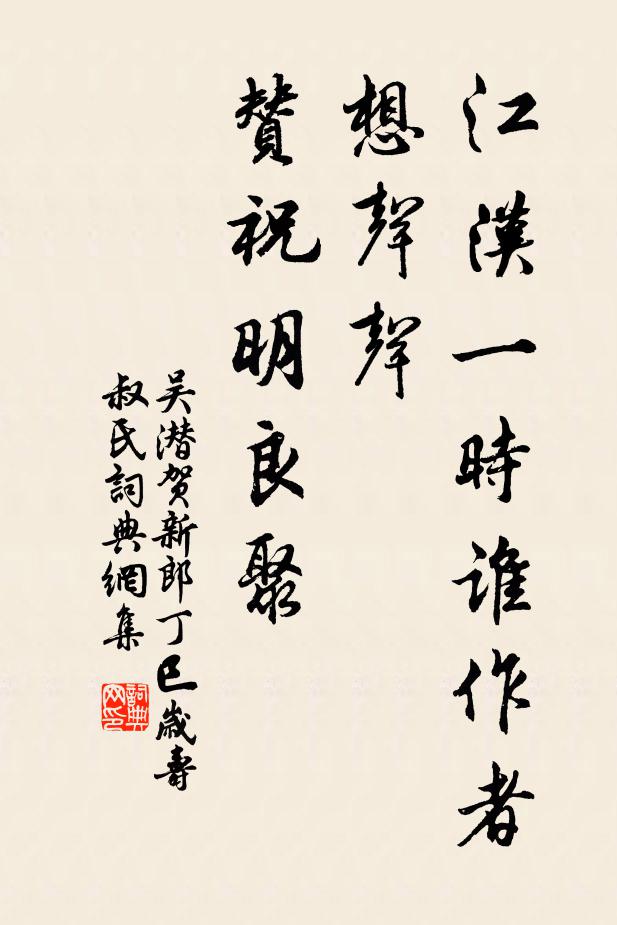 江漢一時誰作者
想聲聲
贊祝明良聚
吴潜贺新郎丁巳歲壽
叔氏詞典網集
詞典
网印